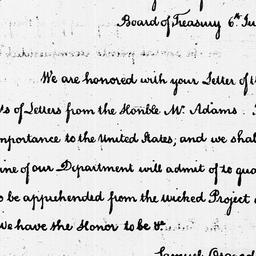 Board of Treasury 6th Ju
We are honored with your Letter of th
ts of Letters from the Honble Mr. Adams.
mportance to the United States; and we shall
ine of our Department will admit of to gua
o be apprehended from the wicked Project
We have the Honor to be &c.
Samuel Osgood